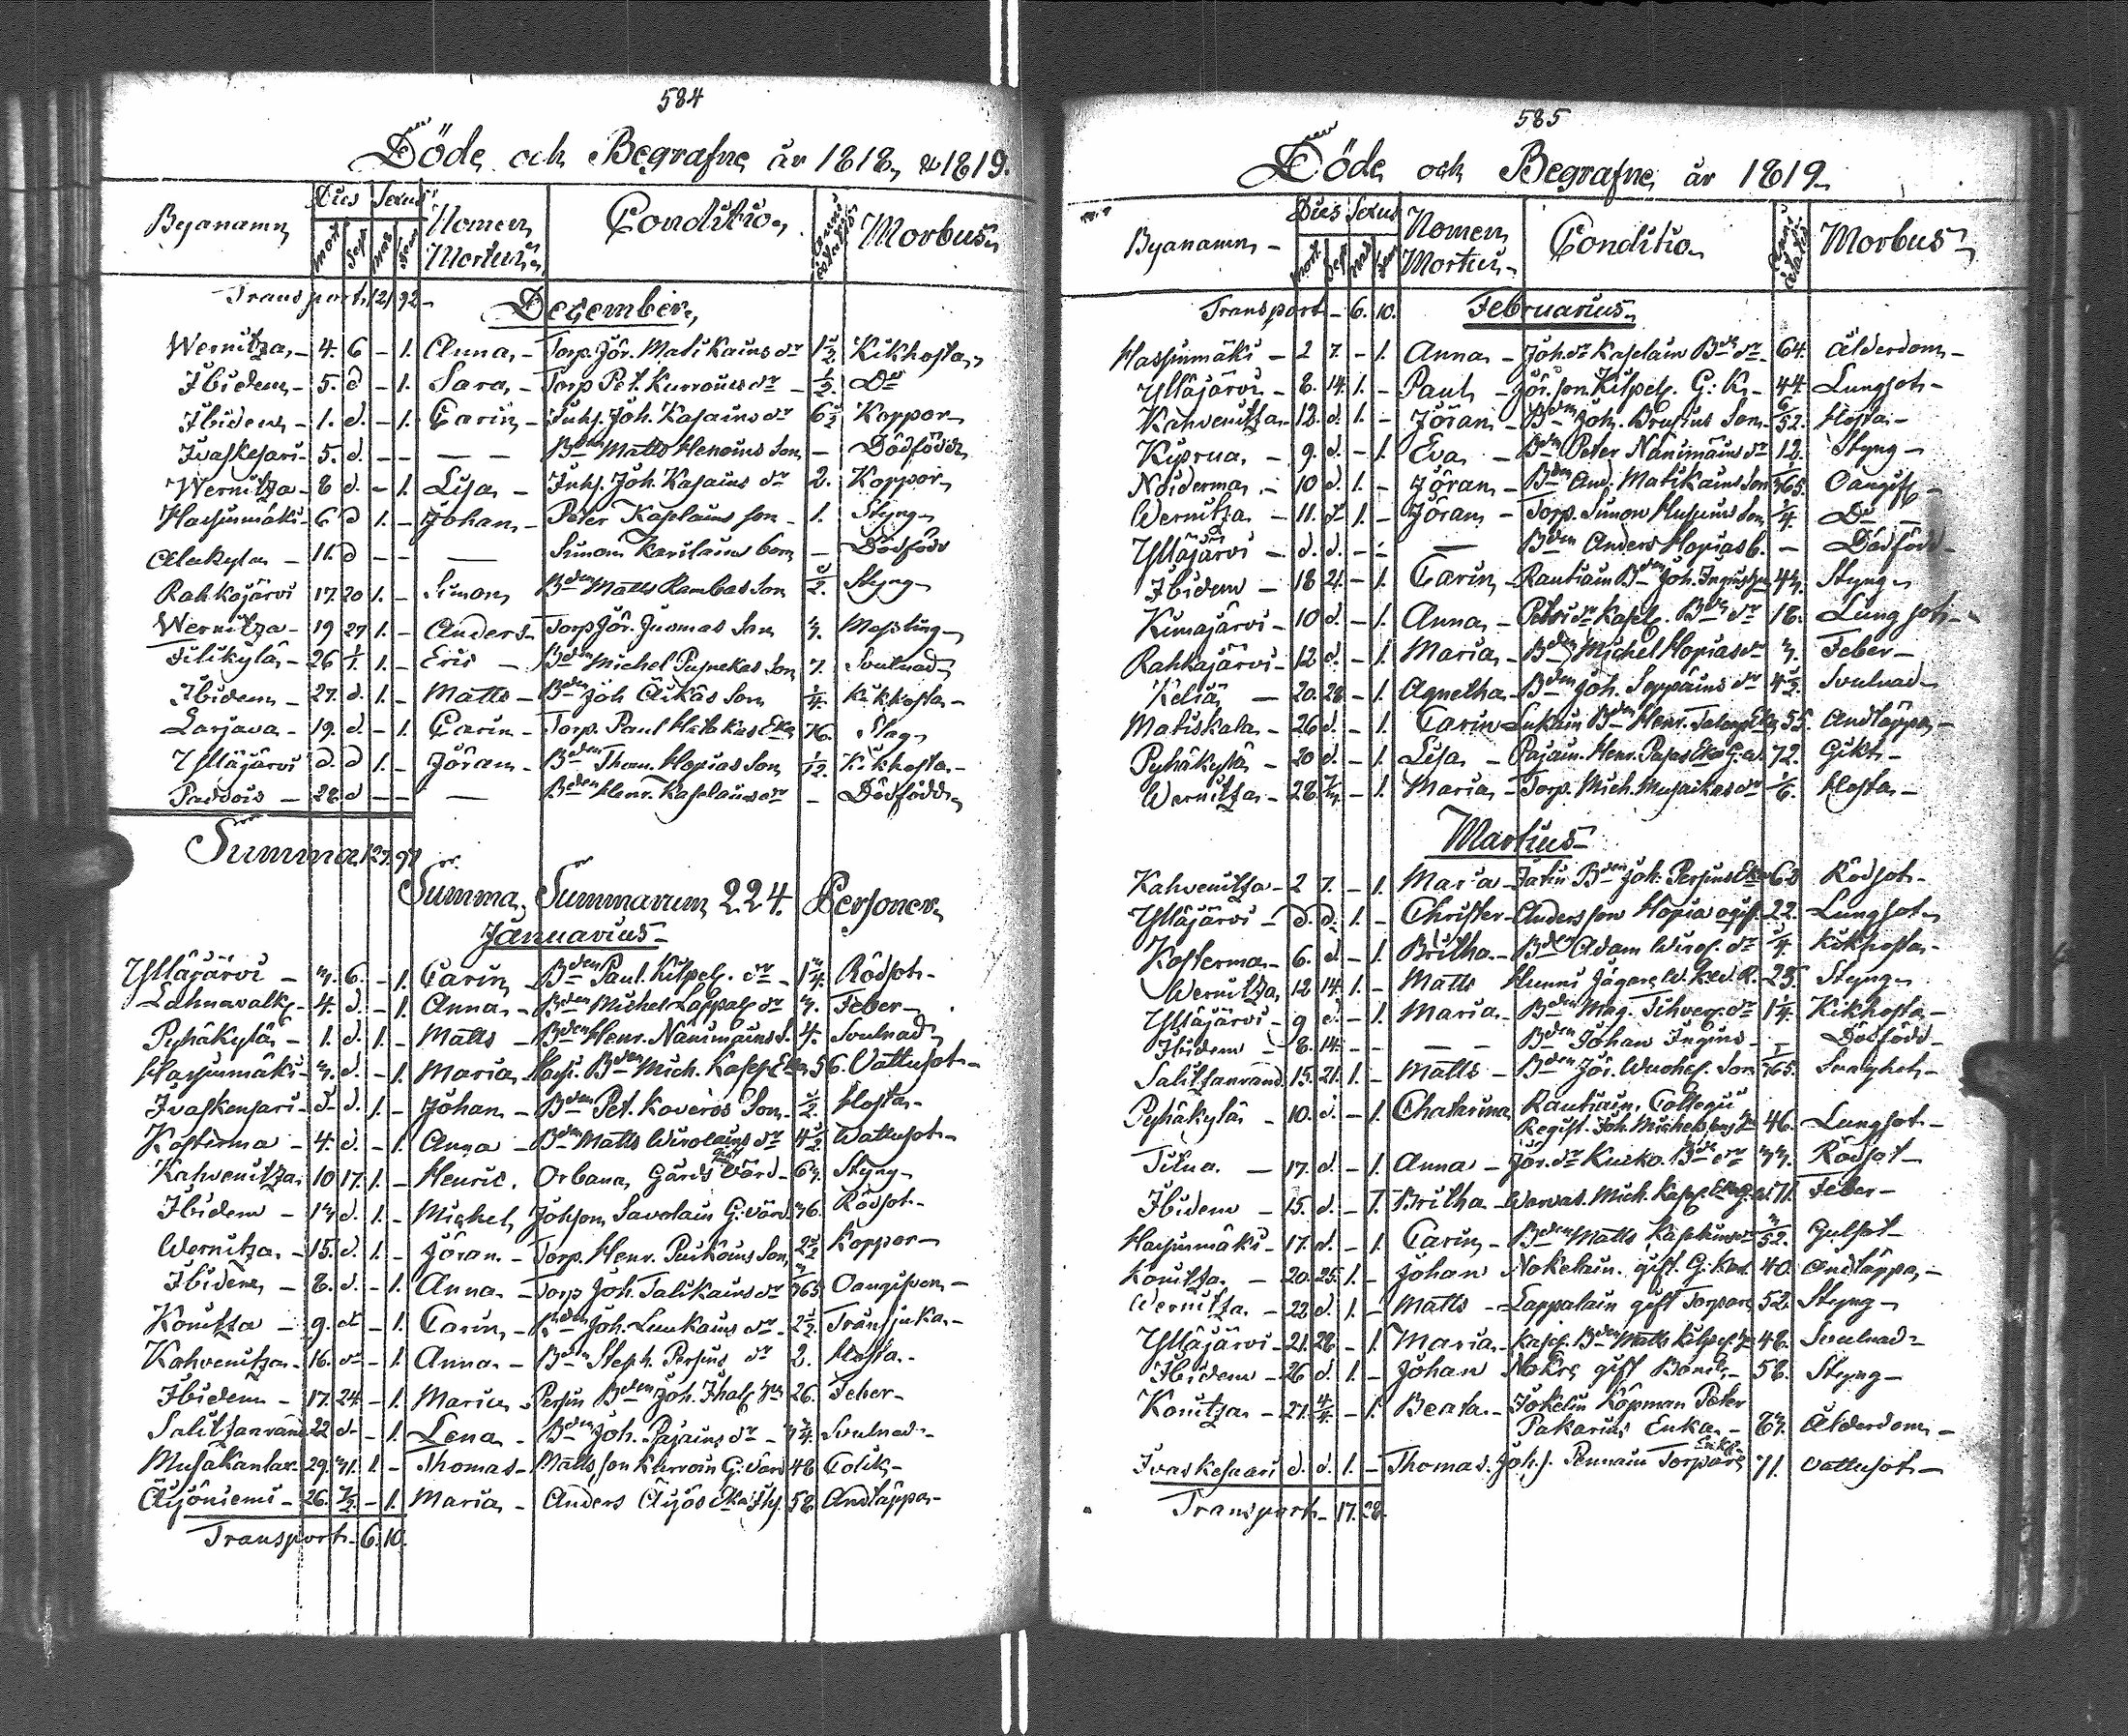 584
Döde och Begrafne år 1818 & 1819.
Byanamn Dies Sexus Nomen Mortui Conditio Morbus
mort. Sep. Mas Fem
Transport 121 92
December
Wernitza 4. 6 - 1. Anna Torp. Jör. Matikains dr 1 1/2 Kikhosta
Ibidem 5. d - 1. Sara Torp Pet. Kurrouis dr 1/2. Do
Ibidem 1. d. - 1. Carin Inhs. Joh. Kasains dr 6 1/2 Koppor
Ivaskesari 5. d. - - Bden Matts Henoins Son - Dödfödd
Wernitza 8 d. - 1. Lisa Inhs. Joh. Kasains dr 2. Koppor
Hassinmäki 6 d 1. - Johan Peter Kaselains son 1. Styng
Alakyla 11. d - - Simon Karilains barn - Dödfödd
Rahkajärvi 17. 20 1. - Simon Bden Matts Rambas Son 1/2. Styng
Wernitza 19 27 1. - Anders Torp Jör. Juomas Son 3. Messling
Tilikylä 26 1/1. 1. - Eric Bden Michel Pusnekas Son 7. Svulnad
Ibidem 27. d. 1. - Matts Bden Joh Äikäs Son 1/4. Kikhosta
Larjava 19. d. - 1. Carin Torp. Paul Hätökäs Eka 76. Slag
Ylläjärvi d. d 1. - Jöran Bden Thom. Hopias Son 1/12. Kikhosta
Paddois 28. d - - Bden Henr. Kaselains dr - Dödfödd
Summa 127. 97
Summa Summarum 224. Personer
Januarius
Ylläjärvi 3. 6. - 1. Carin Bden Paul. Kilpel. dr 1 3/4. Rödsot
Lahnavalk. 4. d. - 1. Anna Bden Michel Lappal. dr 3. Feber
Pyhäkylä 1. d. 1. - Matts Bden Henr. Nänimäins S. 4. Svulnad
Hassinmäki 3. d. - 1. Maria Hass. Bden Mich. Kasel. Eka 56. Vattusot
Ivaskensari d. d. 1. - Johan Bden Pet. Koveros Son 1/2. Hosta
Kosterma 4. d. - 1. Anna Bden Matts Wirolains dr 4 1/2 Wattusot
Kahvenitza 10 17. 1. - Henric Orbana Gårds Värd 63. Styng
Ibidem 13 d. 1. - Michel Johsson Savolain G: värd 36. Rödsot
Wernitza 15. d. 1. - Jöran Torp. Henr. Puikoins Son 2 1/2 Koppor
Ibidem 8. d. - 1. Anna Torp Joh. Talikains dr 3/365 Oangifven
Konitza 9. d. - 1. Carin Bden Joh. Luukains dr 2 1/2. Trånsjuka
Kahvenitza 16. d. - 1. Anna Bden Steph. Persins dr 2. Hosta
Ibidem 17. 24 - 1. Maria Persin Bden Joh. Ihal. Hu 26. Feber
Salitsanränd 22 d. - 1. Lena Bden Joh. Pajains dr 3 3/4. Svulnad
Musakanlax 29. 31. 1. - Thomas Matts son Kurvoin G: värd 48 Colik
Äijöniemi 26. 7/2. - 1. Maria Anders Äijös Eka Ihl. 58 Andtäppa
Transport 6. 10.
585
Döde och Begrafne år 1819
Byanamn Dies Sexus Nomen Mortui Conditio Morbus
Transport 6. 10.
Februarius
Hassinmäki 2 7. - 1. Anna Joh. dr Kaselain Bds dr 64. Ålderdom
Ylläjärvi 8. 14. 1. - Paul Jör. son Kilpel. G: K. 44. Lungsot
Kahvenitza 12. d. 1. - Jöran Bden Joh. Brusius Son 6/52. Hosta
Kiprua 9. d. - 1 Eva Bden Peter Nänimäins dr 12. Styng
Noiderma 10 d. 1. - Jöran Bden And. Matikains Son 1/365. Oangif
Wernitza 11. d. 1. - Jöran Torp. Simon Husuins Son 1/4. Do
Ylläjärvi d. d. - - Bden Anders Hopias b. - Dödfödd
Ibidem 18 21. - 1. Carin Rautiain Bden Joh. 43. Styng
Kumajärvi 10 d. - 1. Anna Petri dr Kasel. Bds dr 18. Lungsot
Rahkajärvi 12 d. - 1. Maria Bden Michel Hopias dr 3. Feber
Kelsiä 20. 28. - 1. Agnetha Bden Joh. Seppäins dr 4 1/2. Svulnad
Matiskala 26 d. - 1. Carin Lukain Bden Henr. Eka 55. Andtäppa
Pyhäkylä 20 d. - 1. Lisa Pajain. Henr. Pajas Eka G. a. 72. Gikt
Wernitza 28. - 1. Maria Torp. Mich. Musaikas dr 1/6. Hosta
Martius
Kahvenitza 2 7. - 1. Maria Bden Joh. Persins Eka 60 Rödsot
Ylläjärvi d. d. 1. - Christer Andersson Hopia ogift. 22. Lungsot
Kosterma 6. d. - 1. Britha Bden Adam Wirol. dr 3/4. Kikhosta
Wernitza 12 14. 1. - Matts Hunni Jägare 23. Styng
Ylläjärvi 9 d. - 1. Maria Bden Mag. Tihver. dr 1 1/4. Kikhosta
Ibidem 8. 14. - - Bden Johan Ingins - Dödfödd
Salitsanränd 15. 21. 1. - Matts Bden Jör. Wuohel. Son 1/365. Svaghet
Pyhäkylä 10. d. - 1. Chatarina Rautiain. Collegii
Regist. Joh. Michelssons Hu 46. Lungsot
Tiłua 17. d. - 1. Anna Jör. dr Kurko. Bds dr 33. Rödsot
Ibidem 15. d. - 1. Britha Warvas. Mich. Kasel. Eka G. a. 71. Feber
Hassinmäki 17. d. - 1. Carin Bden Matts Kaselains dr 3/52. Gulsot
Konitza 20. 25. 1. - Johan Nokelain. gift. G: Karl. 40. Andtäppa
Wernitza 22 d. 1. - Matts Lappalain gift Torpare 52. Styng
Ylläjärvi 21. 28 - 1. Maria Kasel. Bden Matts Kilpel. Hu 48. Svulnad
Ibidem 26 d. 1. - Johan Nokre gift Bonde 58. Styng
Konitza 27. 4/4. - 1. Beata Jokelin Köpman Peter
Pakarins Enka 83. Ålderdom
Ivaskesaari d. d. 1. - Thomas Joh. s. Pennain Torpare Enkl. 71. Vattusot
Transport 17. 28.